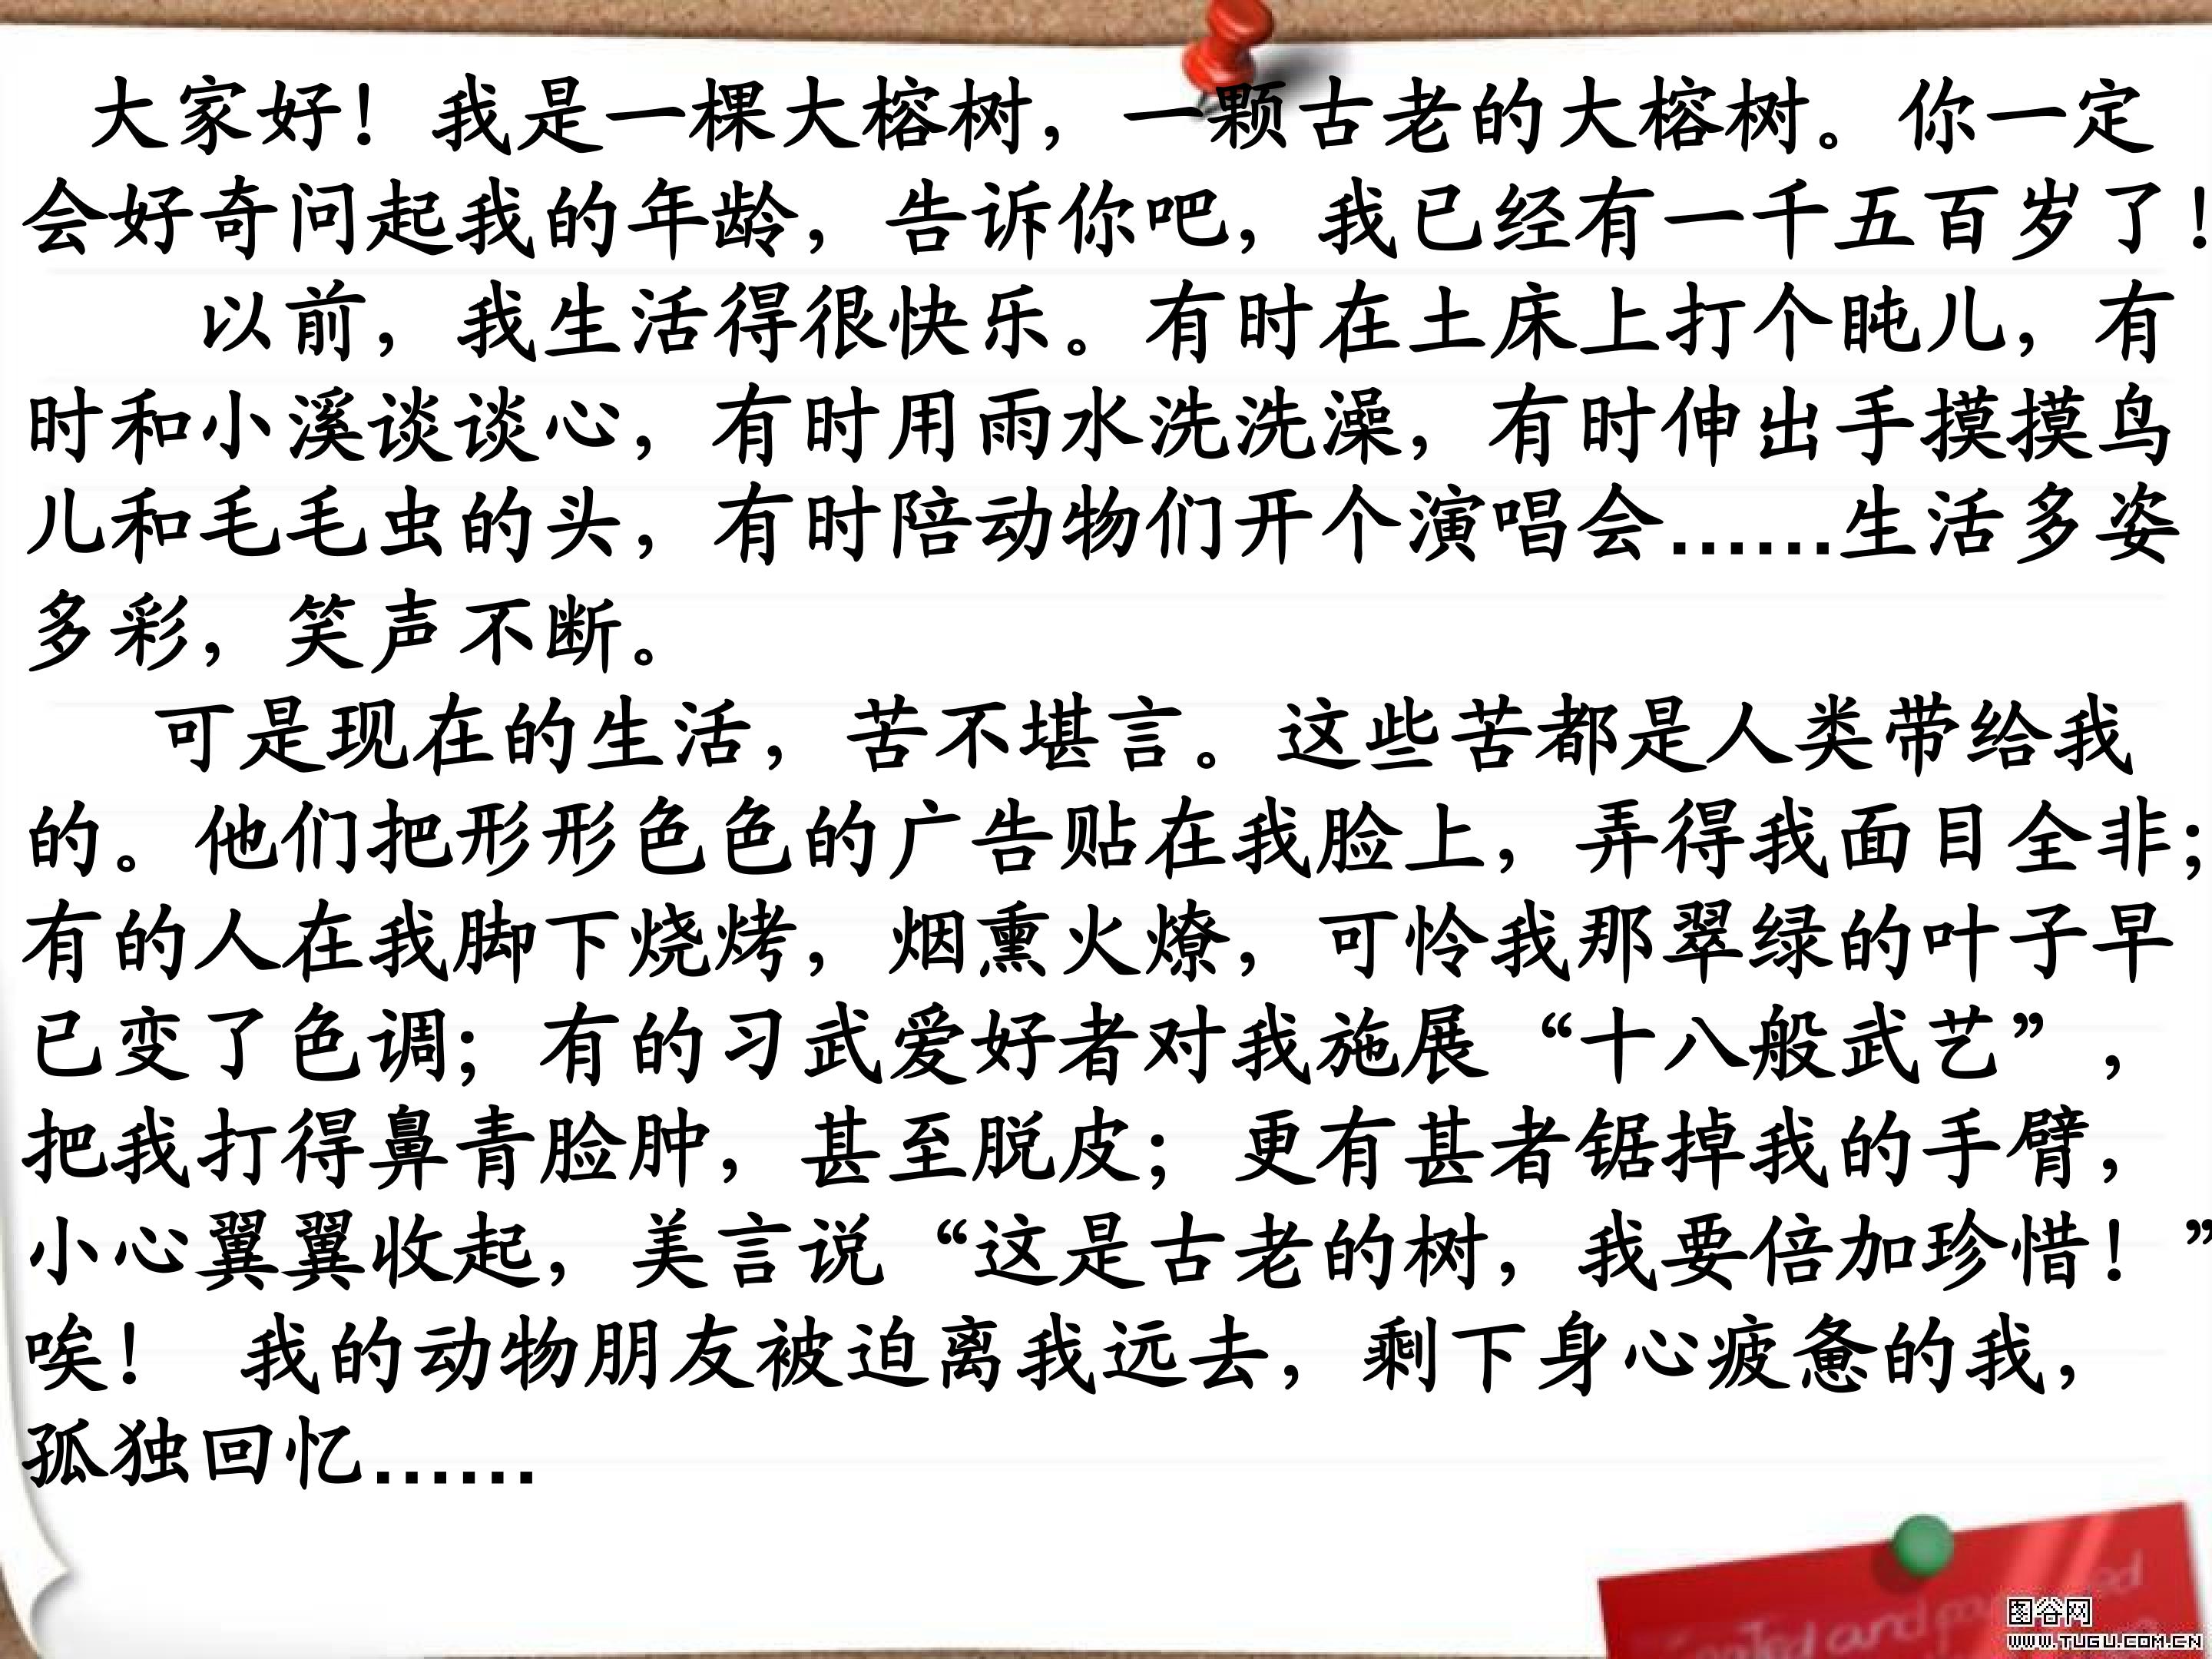 大家好！我是一棵大榕树，一颗古老的大榕树。你一定
会好奇问起我的年龄，告诉你吧，我已经有一千五百岁了！
以前，我生活得很快乐。有时在土床上打个盹儿，有
时和小溪谈谈心，有时用雨水洗洗澡，有时伸出手摸摸鸟
儿和毛毛虫的头，有时陪动物们开个演唱会……生活多姿
多彩，笑声不断。
可是现在的生活，苦不堪言。这些苦都是人类带给我
的。他们把形形色色的广告贴在我脸上，弄得我面目全非；
有的人在我脚下烧烤，烟熏火燎，可怜我那翠绿的叶子早
已变了色调；有的习武爱好者对我施展“十八般武艺”，
把我打得鼻青脸肿，甚至脱皮；更有甚者锯掉我的手臂，
小心翼翼收起，美言说“这是古老的树，我要倍加珍惜！”
唉！ 我的动物朋友被迫离我远去，剩下身心疲惫的我，
孤独回忆……
图谷网
WWW.TUGU.COM.CN